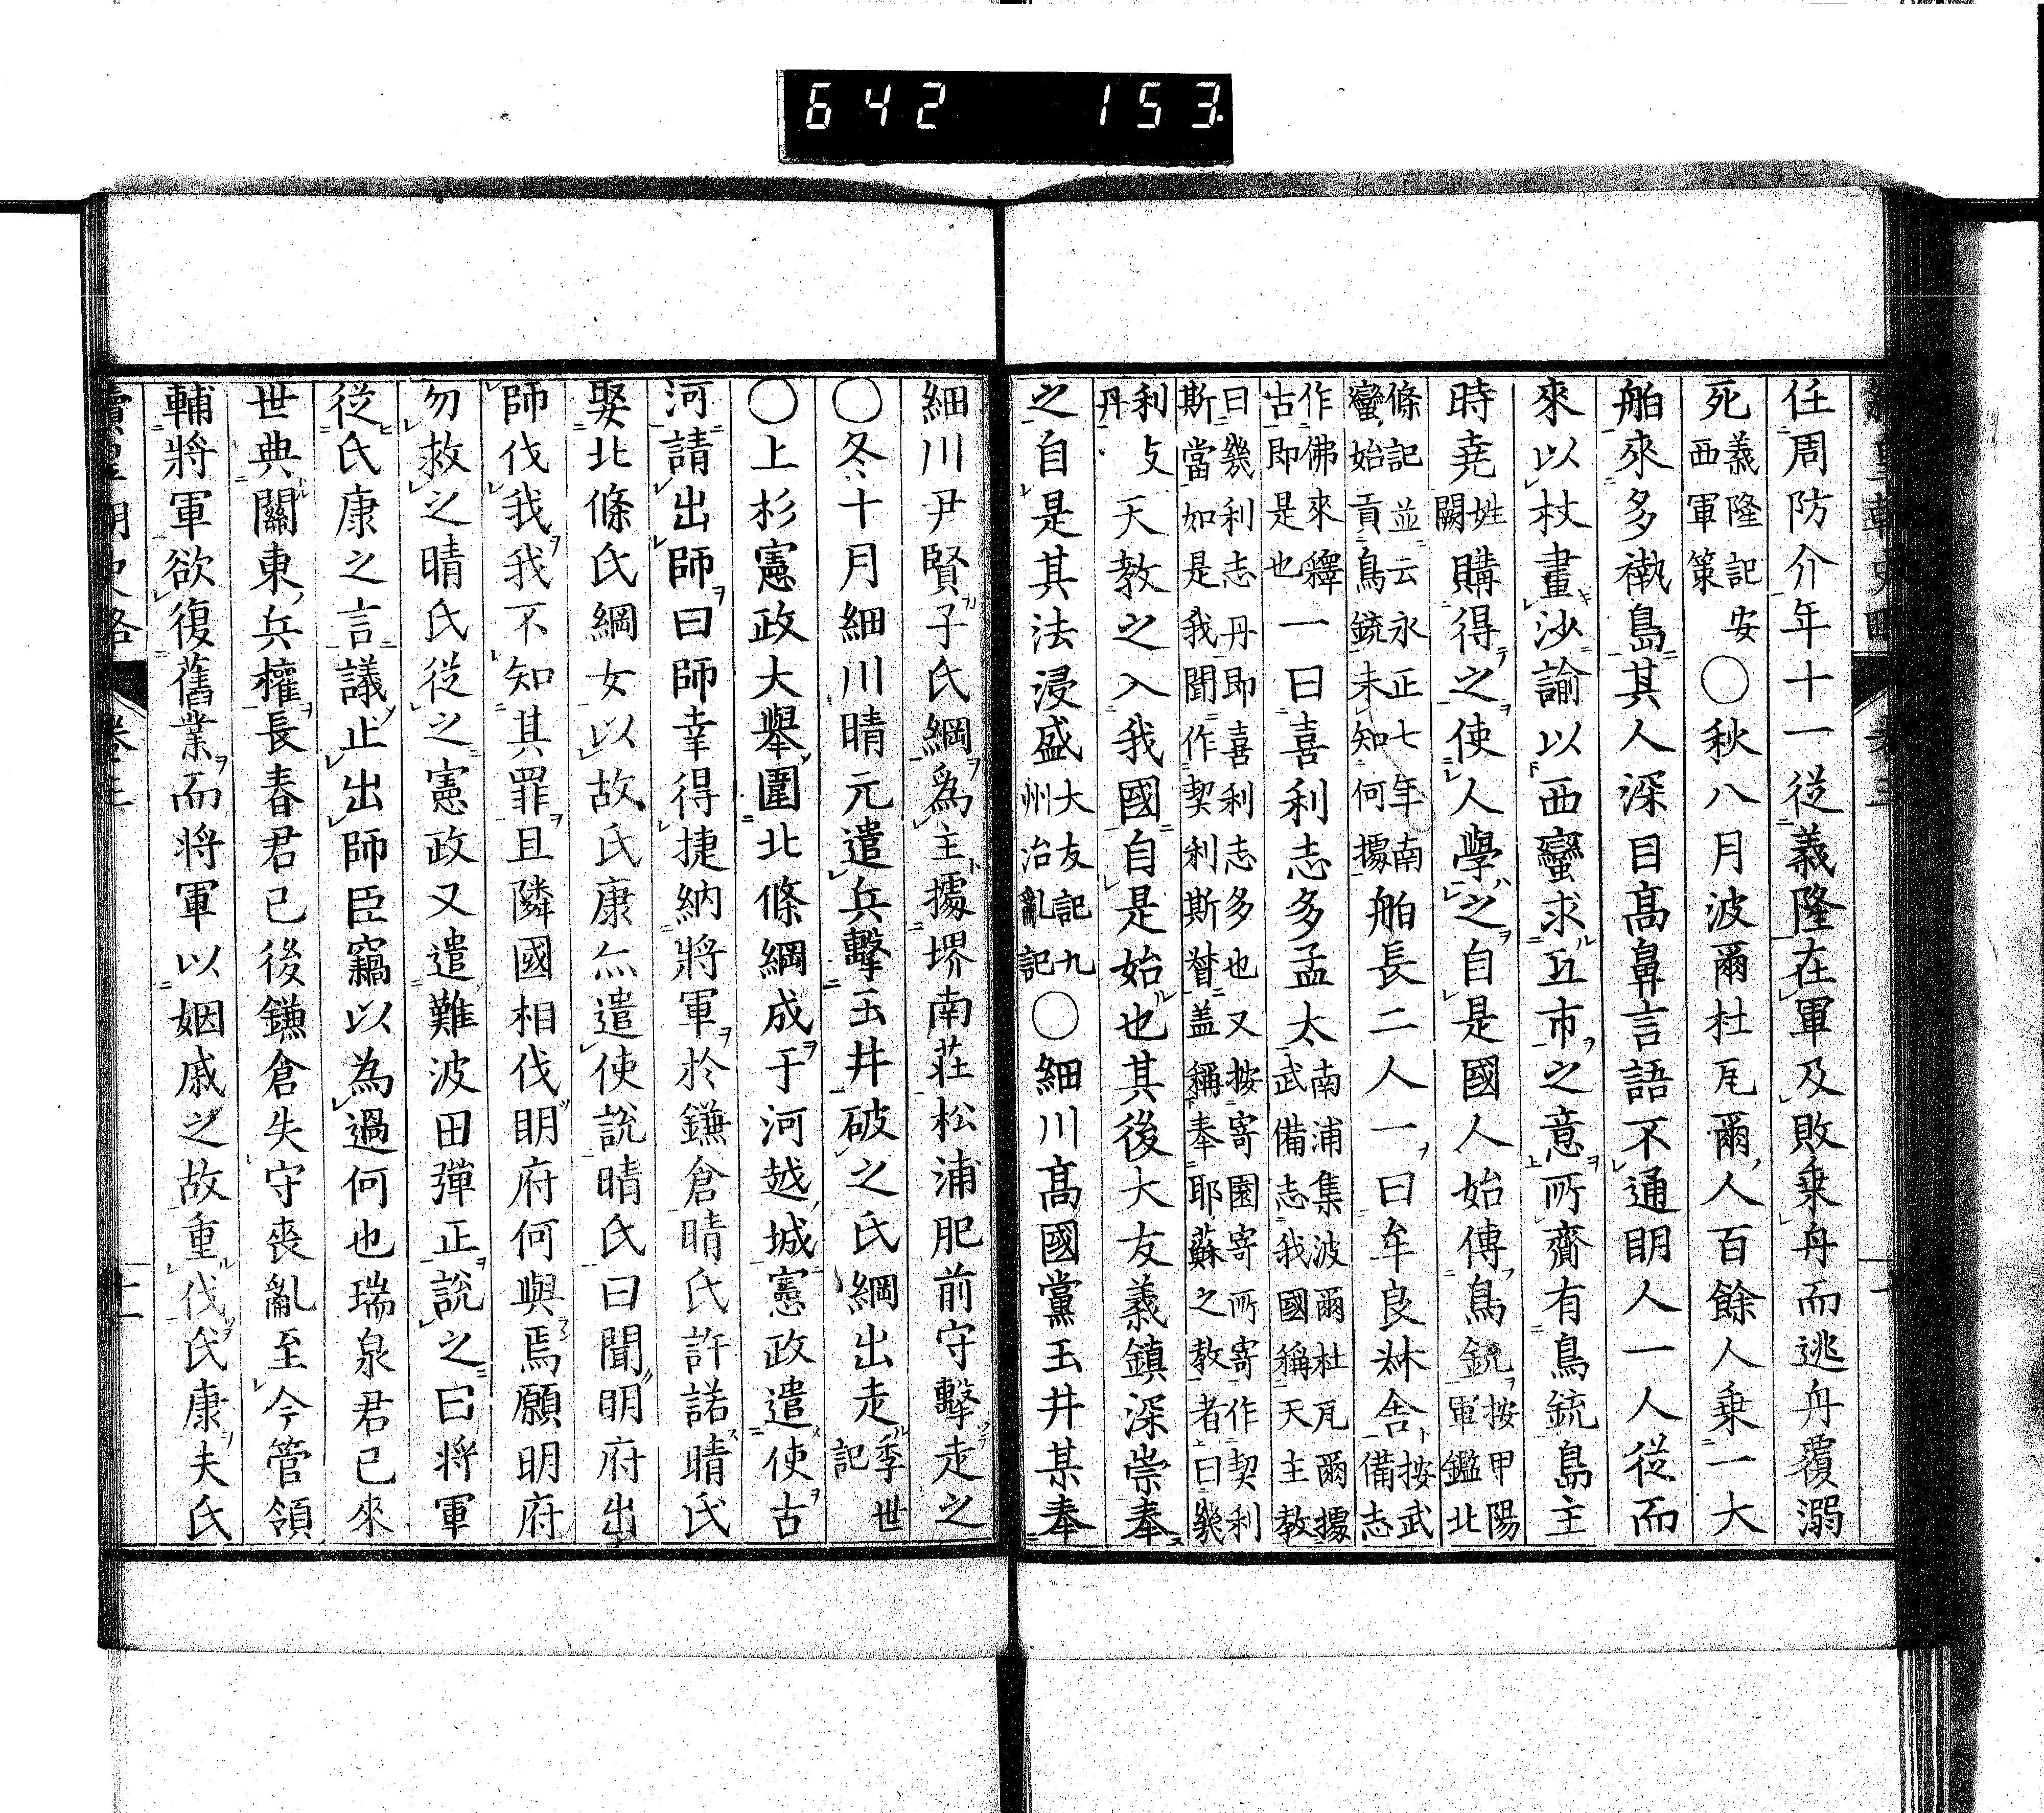 642 153.
任周防介年十一從義隆在軍及敗乗舟而逃舟覆溺
死義隆記安西軍策〇秋八月波爾杜瓦爾人百餘人乗一大
舶來多褹島其人深目高鼻言語不通明人一人從而
來以杖畫沙諭以西蠻求互市之意所齎有鳥銃島主
時堯姓闕購得之使人學之自是國人始傳鳥銃按甲陽軍鑑北
條記並云永正七年南蠻始貢鳥銃未知何據舶長二人一曰牟良叔舎按武備志
作佛來釋古即是也一曰喜利志多孟太南浦集波爾杜瓦爾據武備志我國稱天主教
曰幾利志丹即喜利志多也又按寄園寄所寄作契利斯當如是我聞作契利斯督盖稱奉耶蘇之教者曰幾
利攴丹天教之入我國自是始也其後大友義鎮深崇奉
之自是其法浸盛大友記九州治亂記〇細川髙國黨玉井某奉
細川尹賢子氏綱爲主據堺南荘松浦肥前守擊走之
〇冬十月細川晴元遣兵擊玉井破之氏綱出走季世記
〇上杉憲政大擧圍北條綱成于河越城憲政遣使古
河請出師曰師幸得捷納將軍於鎌倉晴氏許諾晴氏
娶北條氏綱女以故氏康亦遣使說晴氏曰聞明府出
師伐我我不知其罪且隣國相伐明府何與焉願明府
勿救之晴氏從之憲政又遣難波田彈正說之曰將軍
從氏康之言議止出師臣竊以為過何也瑞泉君已來
世典關東兵權長春君已後鎌倉失守喪亂至今管領
輔將軍欲復舊業而將軍以姻戚之故重伐氏康夫氏
續皇朝史略 卷三 十一